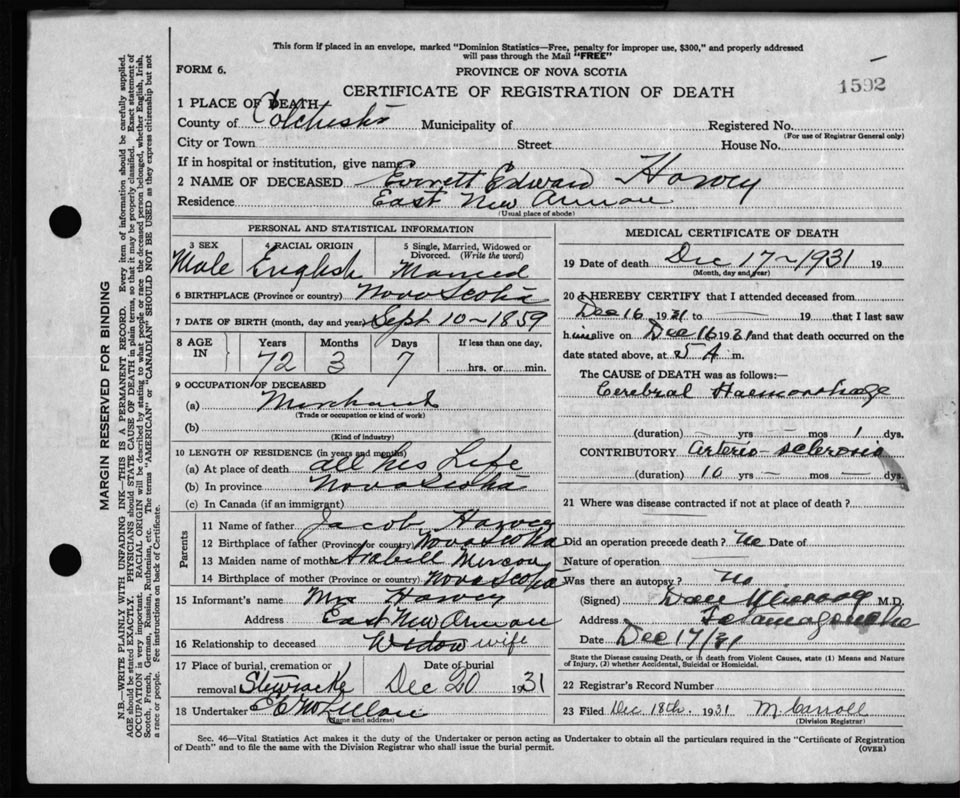 This form if placed in an envelope, marked "Dominion Statistics—Free, penalty for improper use, $300," and properly addressed
will pass through the Mail "FREE"
FORM 6.
PROVINCE OF NOVA SCOTIA
1592
CERTIFICATE OF REGISTRATION OF DEATH
1 PLACE OF DEATH
County of Colchester Municipality of Registered No.
(For use of Registrar General only)
City or Town Street House No.
If in hospital or institution, give name
2 NAME OF DECEASED Everett Edward Harvey
Residence East New Annan
(Usual place of abode)
PERSONAL AND STATISTICAL INFORMATION
3 SEX 4 RACIAL ORIGIN 5 Single, Married, Widowed or Divorced. (Write the word)
Male English Married
6 BIRTHPLACE (Province or country) Nova Scotia
7 DATE OF BIRTH (month, day and year) Sept 10 – 1859
8 AGE IN Years Months Days If less than one day,
72 3 7 hrs. or min.
9 OCCUPATION OF DECEASED
(a) Merchant
(Trade or occupation or kind of work)
(b)
(Kind of industry)
10 LENGTH OF RESIDENCE (in years and months)
(a) At place of death all his Life
(b) In province Nova Scotia
(c) In Canada (if an immigrant)
Parents
11 Name of father Jacob Harvey
12 Birthplace of father (Province or country) Nova Scotia
13 Maiden name of mother
14 Birthplace of mother (Province or country) Nova Scotia
15 Informant's name Mrs Harvey
Address East New Annan
16 Relationship to deceased Widow wife
17 Place of burial, cremation or removal Date of burial
Dec 20 1931
18 Undertaker
(Name and address)
MEDICAL CERTIFICATE OF DEATH
19 Date of death Dec 17 – 1931 19
(Month, day and year)
20 I HEREBY CERTIFY that I attended deceased from
Dec 16 1931 to — 19 that I last saw
him alive on Dec 16 1931 and that death occurred on
date stated above, at 5 A m.
The CAUSE of DEATH was as follows:—
Cerebral Haemorrhage
(duration) — yrs — mos 1 dys.
CONTRIBUTORY arterio-sclerosis
(duration) 10 yrs — mos — dys.
21 Where was disease contracted if not at place of death?
Did an operation precede death? No Date of
Nature of operation
Was there an autopsy? No
(Signed) Dan Murray M.D.
Address Tatamagouche
Date Dec 17/31
State the Disease causing Death, or in death from Violent Causes, state (1) Means and Nature
of Injury, (2) whether Accidental, Suicidal or Homicidal.
22 Registrar's Record Number
23 Filed Dec 18th. 1931 M. Carroll
(Division Registrar)
Sec. 46—Vital Statistics Act makes it the duty of the Undertaker or person acting as Undertaker to obtain all the particulars required in the "Certificate of Registration
of Death" and to file the same with the Division Registrar who shall issue the burial permit.
(OVER)
MARGIN RESERVED FOR BINDING
N.B.—WRITE PLAINLY WITH UNFADING INK—THIS IS A PERMANENT RECORD. Every item of information should be carefully supplied.
AGE should be stated EXACTLY. PHYSICIANS should STATE CAUSE OF DEATH in plain terms, so that it may be properly classified. Exact statement of
OCCUPATION is very important. RACIAL ORIGIN will be described by stating to what people or race the deceased person belonged, whether English, Irish,
Scotch, French, German, Russian, Ruthenian, etc. The terms "AMERICAN" or "CANADIAN" SHOULD NOT BE USED as they express citizenship but not
a race or people. Fee instructions on back of Certificate.